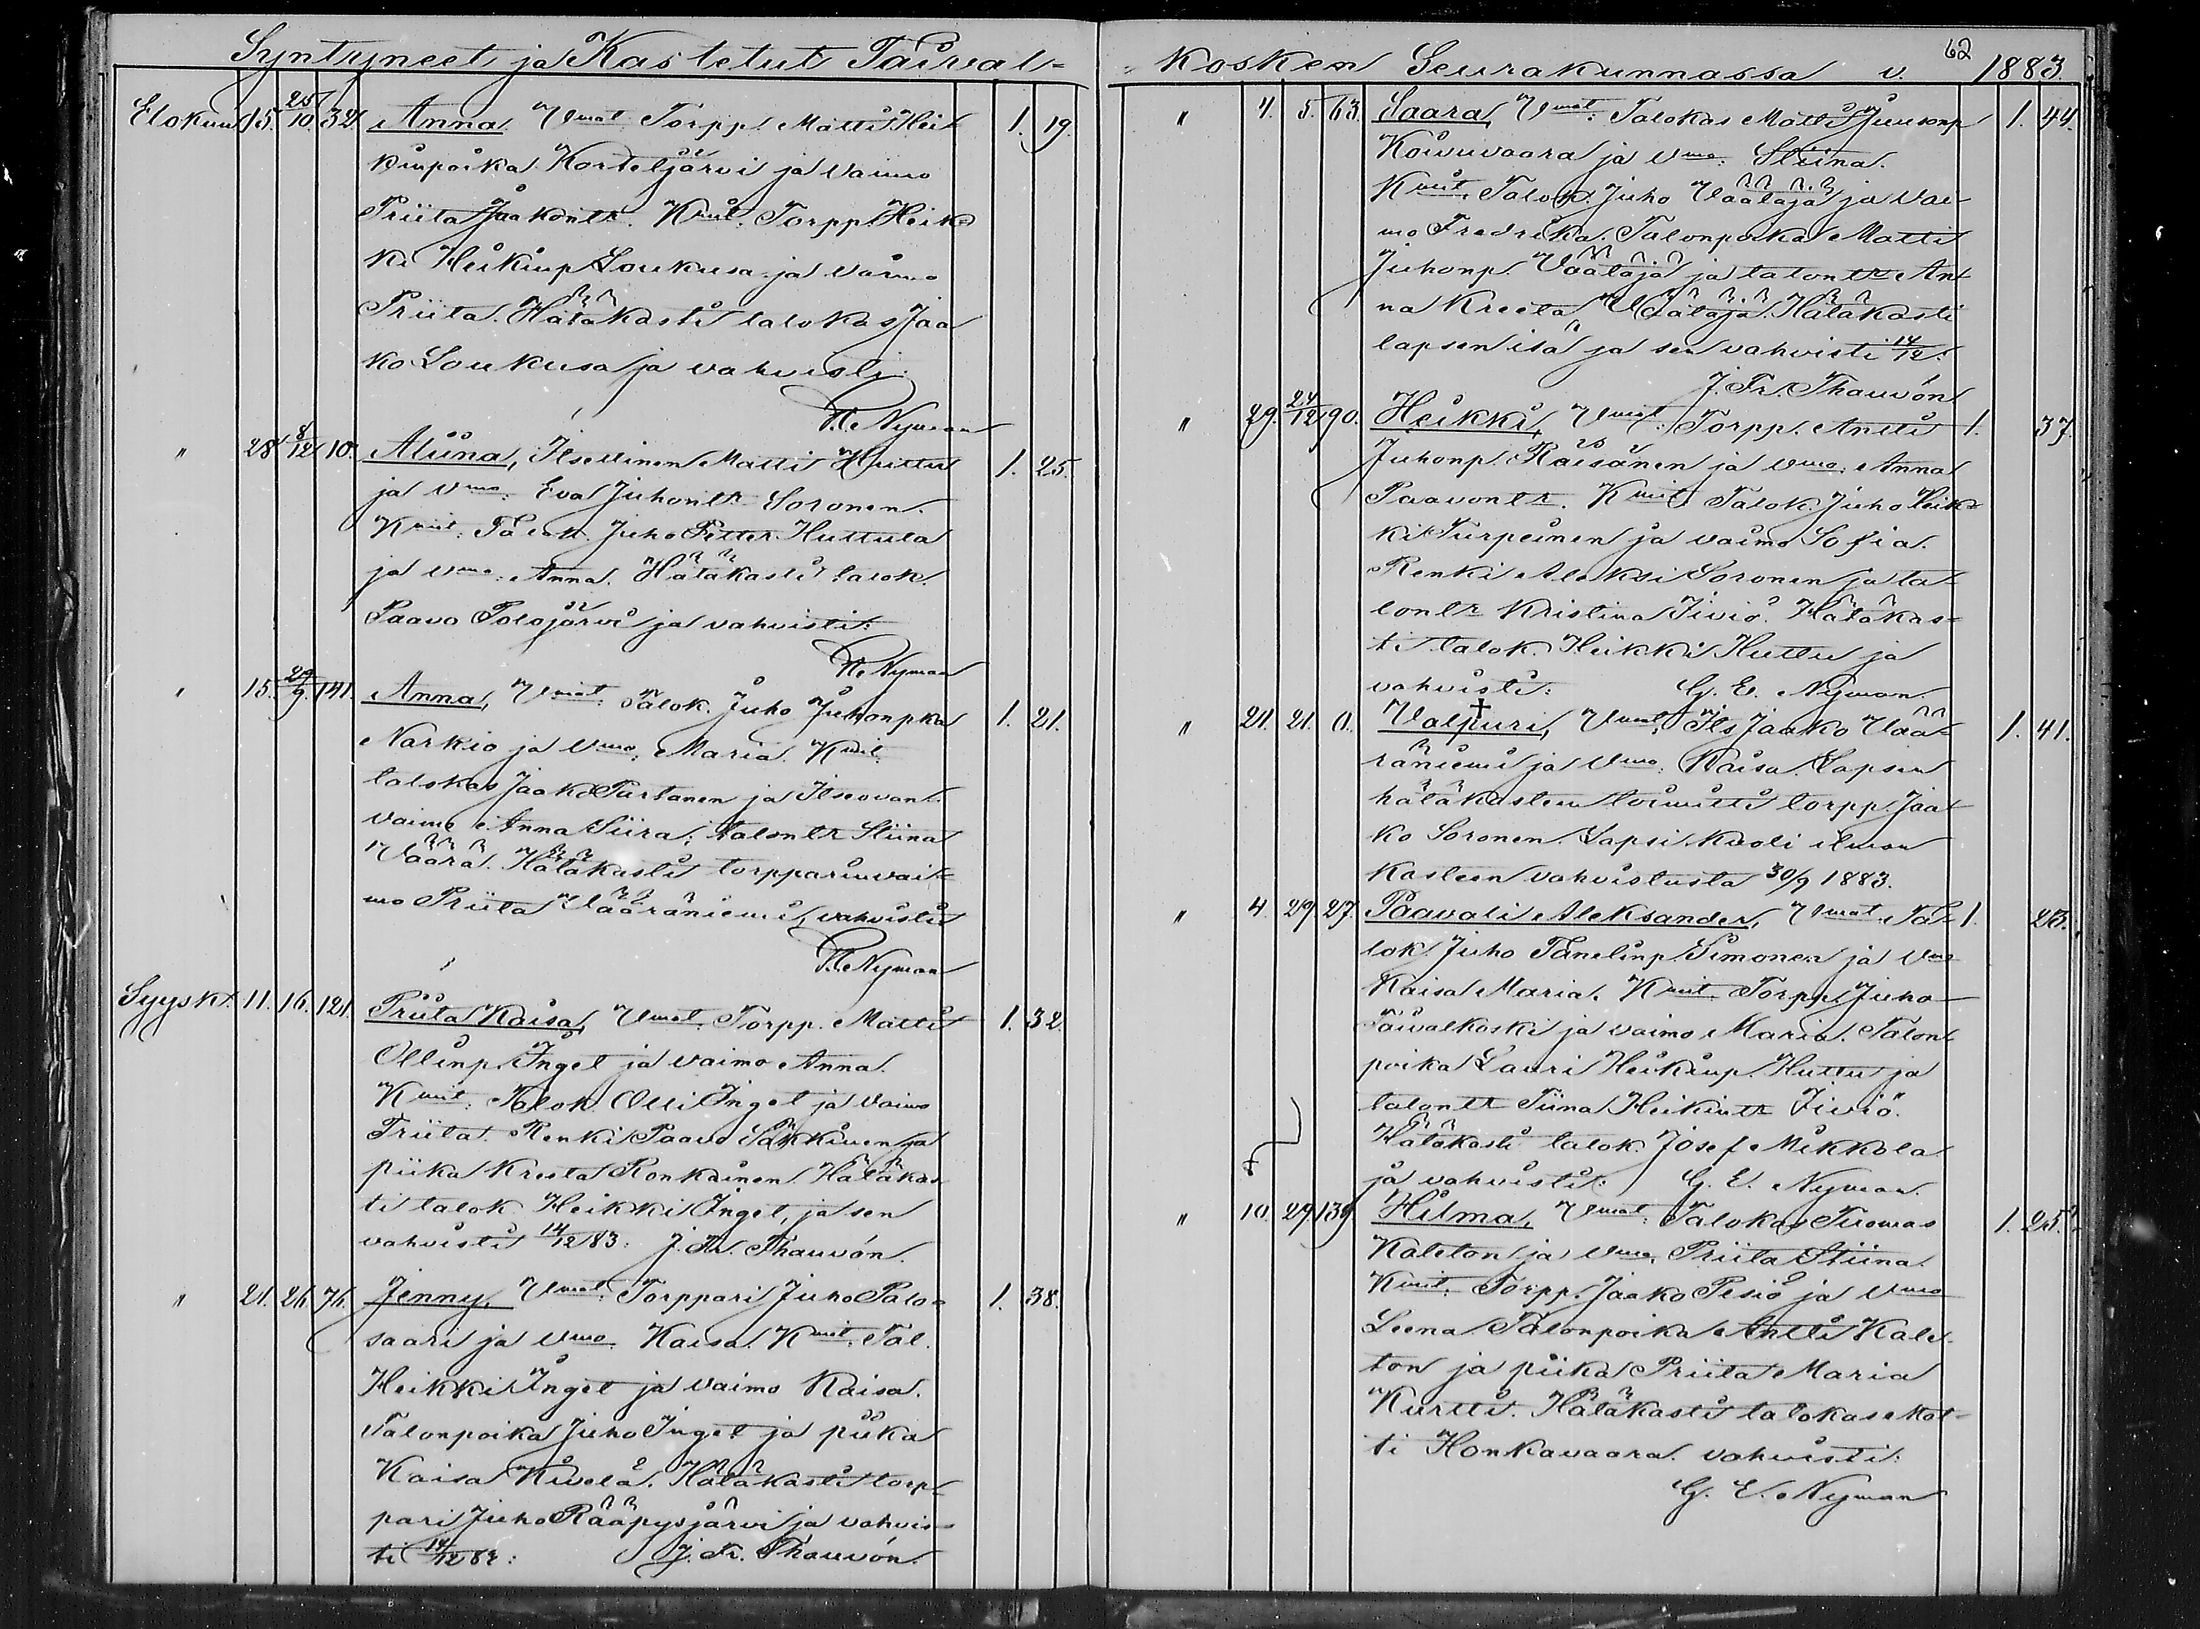 Syntyneet ja Kastetut Taival-
Elokuu 15. 25/10 32. Anna. Vmat Torpp. Matti Hei- 1. 19.
kinpoika Korteljärvi ja vaimo
Priita Jaakontr. Kmit. Torpp. Heik-
ki Heikinp Loukusa ja vaimo
Priita. Hätäkasti talokas Jaa
ko Loukusa ja vahvisti:
Nyman
" 28 8/12 10. Aliina, Itsellinen Matti Huttu 1. 25.
ja Vmo: Eva Juhontr Soronen.
Kmit: Juho Petter Huttula
ja Vmo. Anna. Hätäkasti talok.
Paavo Polojärvi ja vahvisti:
Nyman
" 15. 29/9. 141. Anna, Vmat: Talok. Juho Juhonpka 1. 21.
Narkio ja Vmo. Maria. Kmit.
talokas Jaako Turtanen ja Itseovan.
vaimo Anna Siira; talontr Stiina
Väärä. Hätäkasti torpparinvai-
mo Priita Vääräniemi, vahvisti
Nyman
Syysk. 11. 16. 121. Priita Kaisa, Vmat. Torpp. Matti 1. 32.
Ollinp. Inget ja vaimo Anna.
Kmit: Talok. Olli Inget ja vaimo
Priita. Renki Paavo Säkkinen ja
piika Kreeta Ronkainen Hätäkas
ti talok Heikki Inget, ja sen
vahvisti 14/12 83: J. Fr. Thauvón.
" 21. 26. 76. Jenny, Vmat: Torppari Juho Palo- 1. 38.
saari ja Vmo. Kaisa. Kmit. Tal.
Heikki Inget ja vaimo Kaisa.
Talonpoika Juho Inget ja piika
Kaisa Kivelä. Hätäkasti torp-
pari Juho Rääpysjärvi ja vahvis-
ti 14/12 83: J. Fr. Thauvón.
kosken Seurakunnassa v. 62 1883.
" 4. 5. 63. Saara, Vmat: Talokas Matti Juusonp 1. 44.
Koivuvaara ja Vmo: Stiina.
Kmit. Talok. Juho Väätäjä ja vai
mo Fredrika. Talonpoika Matti
Juhonp. Väätäjä ja talontr An
na Kreeta Väätäjä. Hätäkasti
lapsen isä ja sen vahvisti 14/12:
J. Fr. Thauvón
" 29. 24/12 90. Heikki, Vmat: Torpp. Antti 1. 37.
Juhonp. Räisänen ja Vmo: Anna
Paavontr. Kmit. Talok. Juho Heik-
ki Turpeinen ja vaimo Sofia.
Renki Aleksi Soronen ja ta-
lontr Kristina Jiviö. Hätäkas-
ti talok. Heikki Huttu ja
vahvisti: G. E. Nyman.
" 21. 21. 0. † Valpuri, Vmat. Its Jaako Vää- 1. 41.
räniemi ja Vmo: Kaisa. Lapsen
hätäkasteen toimitti torpp. Jaa
ko Soronen. Lapsi kuoli ilman
kasteen vahvistusta 30/9 1883.
" 4. 29. 27. Paavali Aleksander, Vmat. Ta- 1. 23.
lok. Juho Tanelinp Simonen ja Vmo
Kaisa Maria. Kmit. Torpp. Juho
Taivalkoski ja vaimo Maria. Talon
poika Lauri Heikinp. Huttu ja
talontr Tiina Heikintr Jiviö.
Hätäkasti talok. Josef Mikkola
ja vahvisti: G. E. Nyman.
" 10. 29 139 Hilma, Vmat: Talokas Tuomas 1. 25.
Kaleton ja Vmo. Priita Stiina.
Kmit. Torpp. Jaako Pesiö ja Vmo
Leena Talonpoika Antti Kale-
ton ja piika Priita Maria
Kurtti. Hätäkasti talokas Mat-
ti Honkavaara vahvisti:
G. E. Nyman